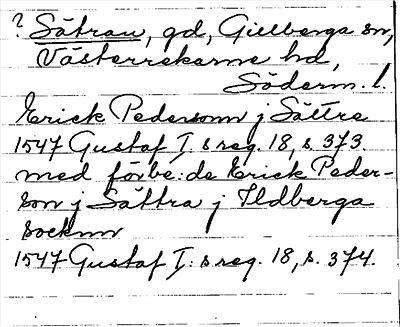 ? Sätran, gd, Gillberga sn,
Västerrekarne hd,
Söderm. l.
Erick Pedersonn j Sättre
1547 Gustaf I. s reg. 18, s. 373.
med förbe:de Erick Peder-
son j Sättra j Ildberga
socknn
1547 Gustaf I: s reg. 18, s. 374.